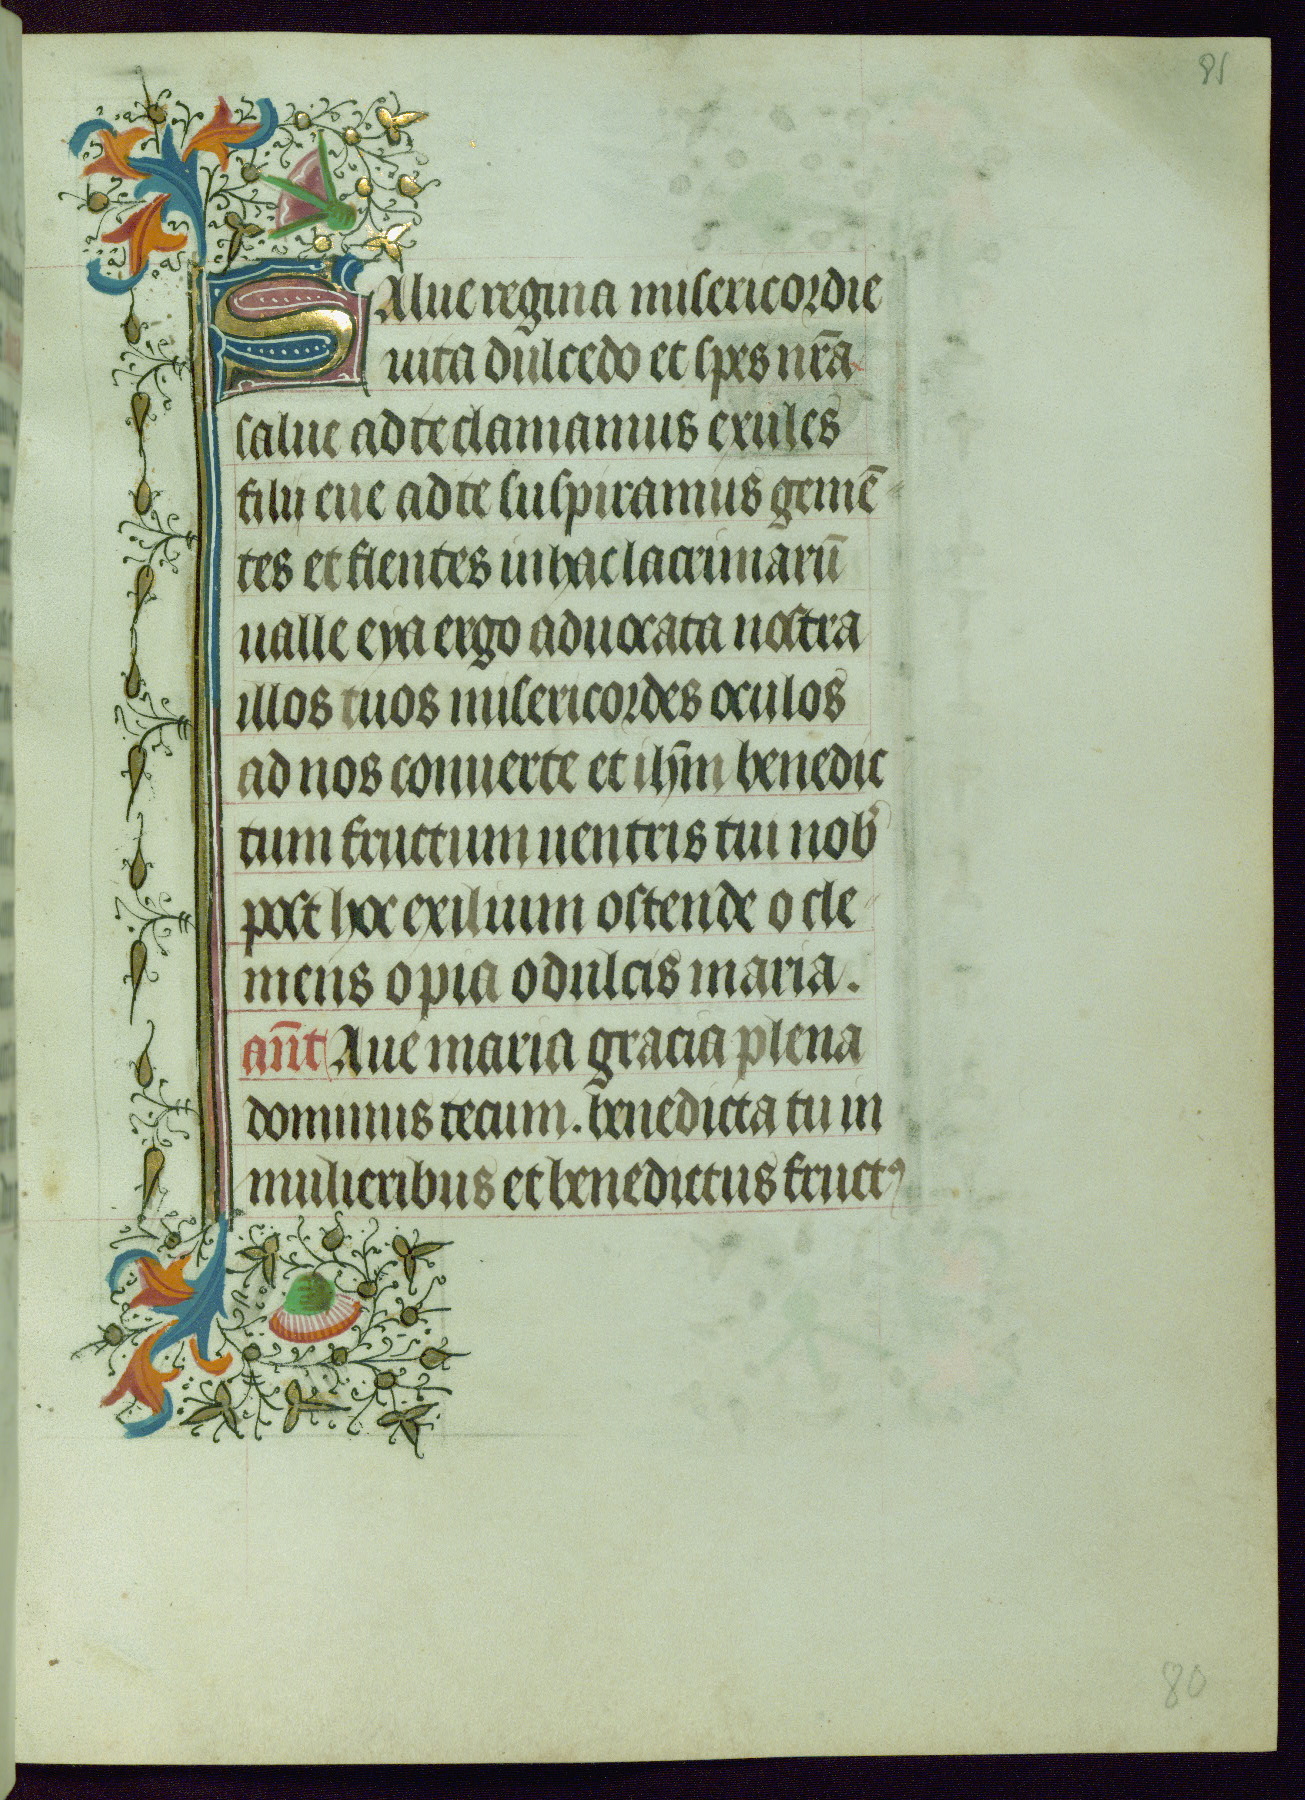 81
SAlue regina misericordie
uita dulcedo et spes nr̄a
salue ad te clamamus exules
filii eue ad te suspiramus gemē
tes et flentes in hac lacrimarū
ualle eya ergo aduocata nostra
illos tuos misericordes oculos
ad nos conuerte et ihm̄ benedic
tum fructum uentris tui nob̄
post hoc exilium ostende o cle
mens o pia o dulcis maria.
an̄t Aue maria gracia plena
dominus tecum. benedicta tu in
mulieribus et benedictus fructꝰ
80